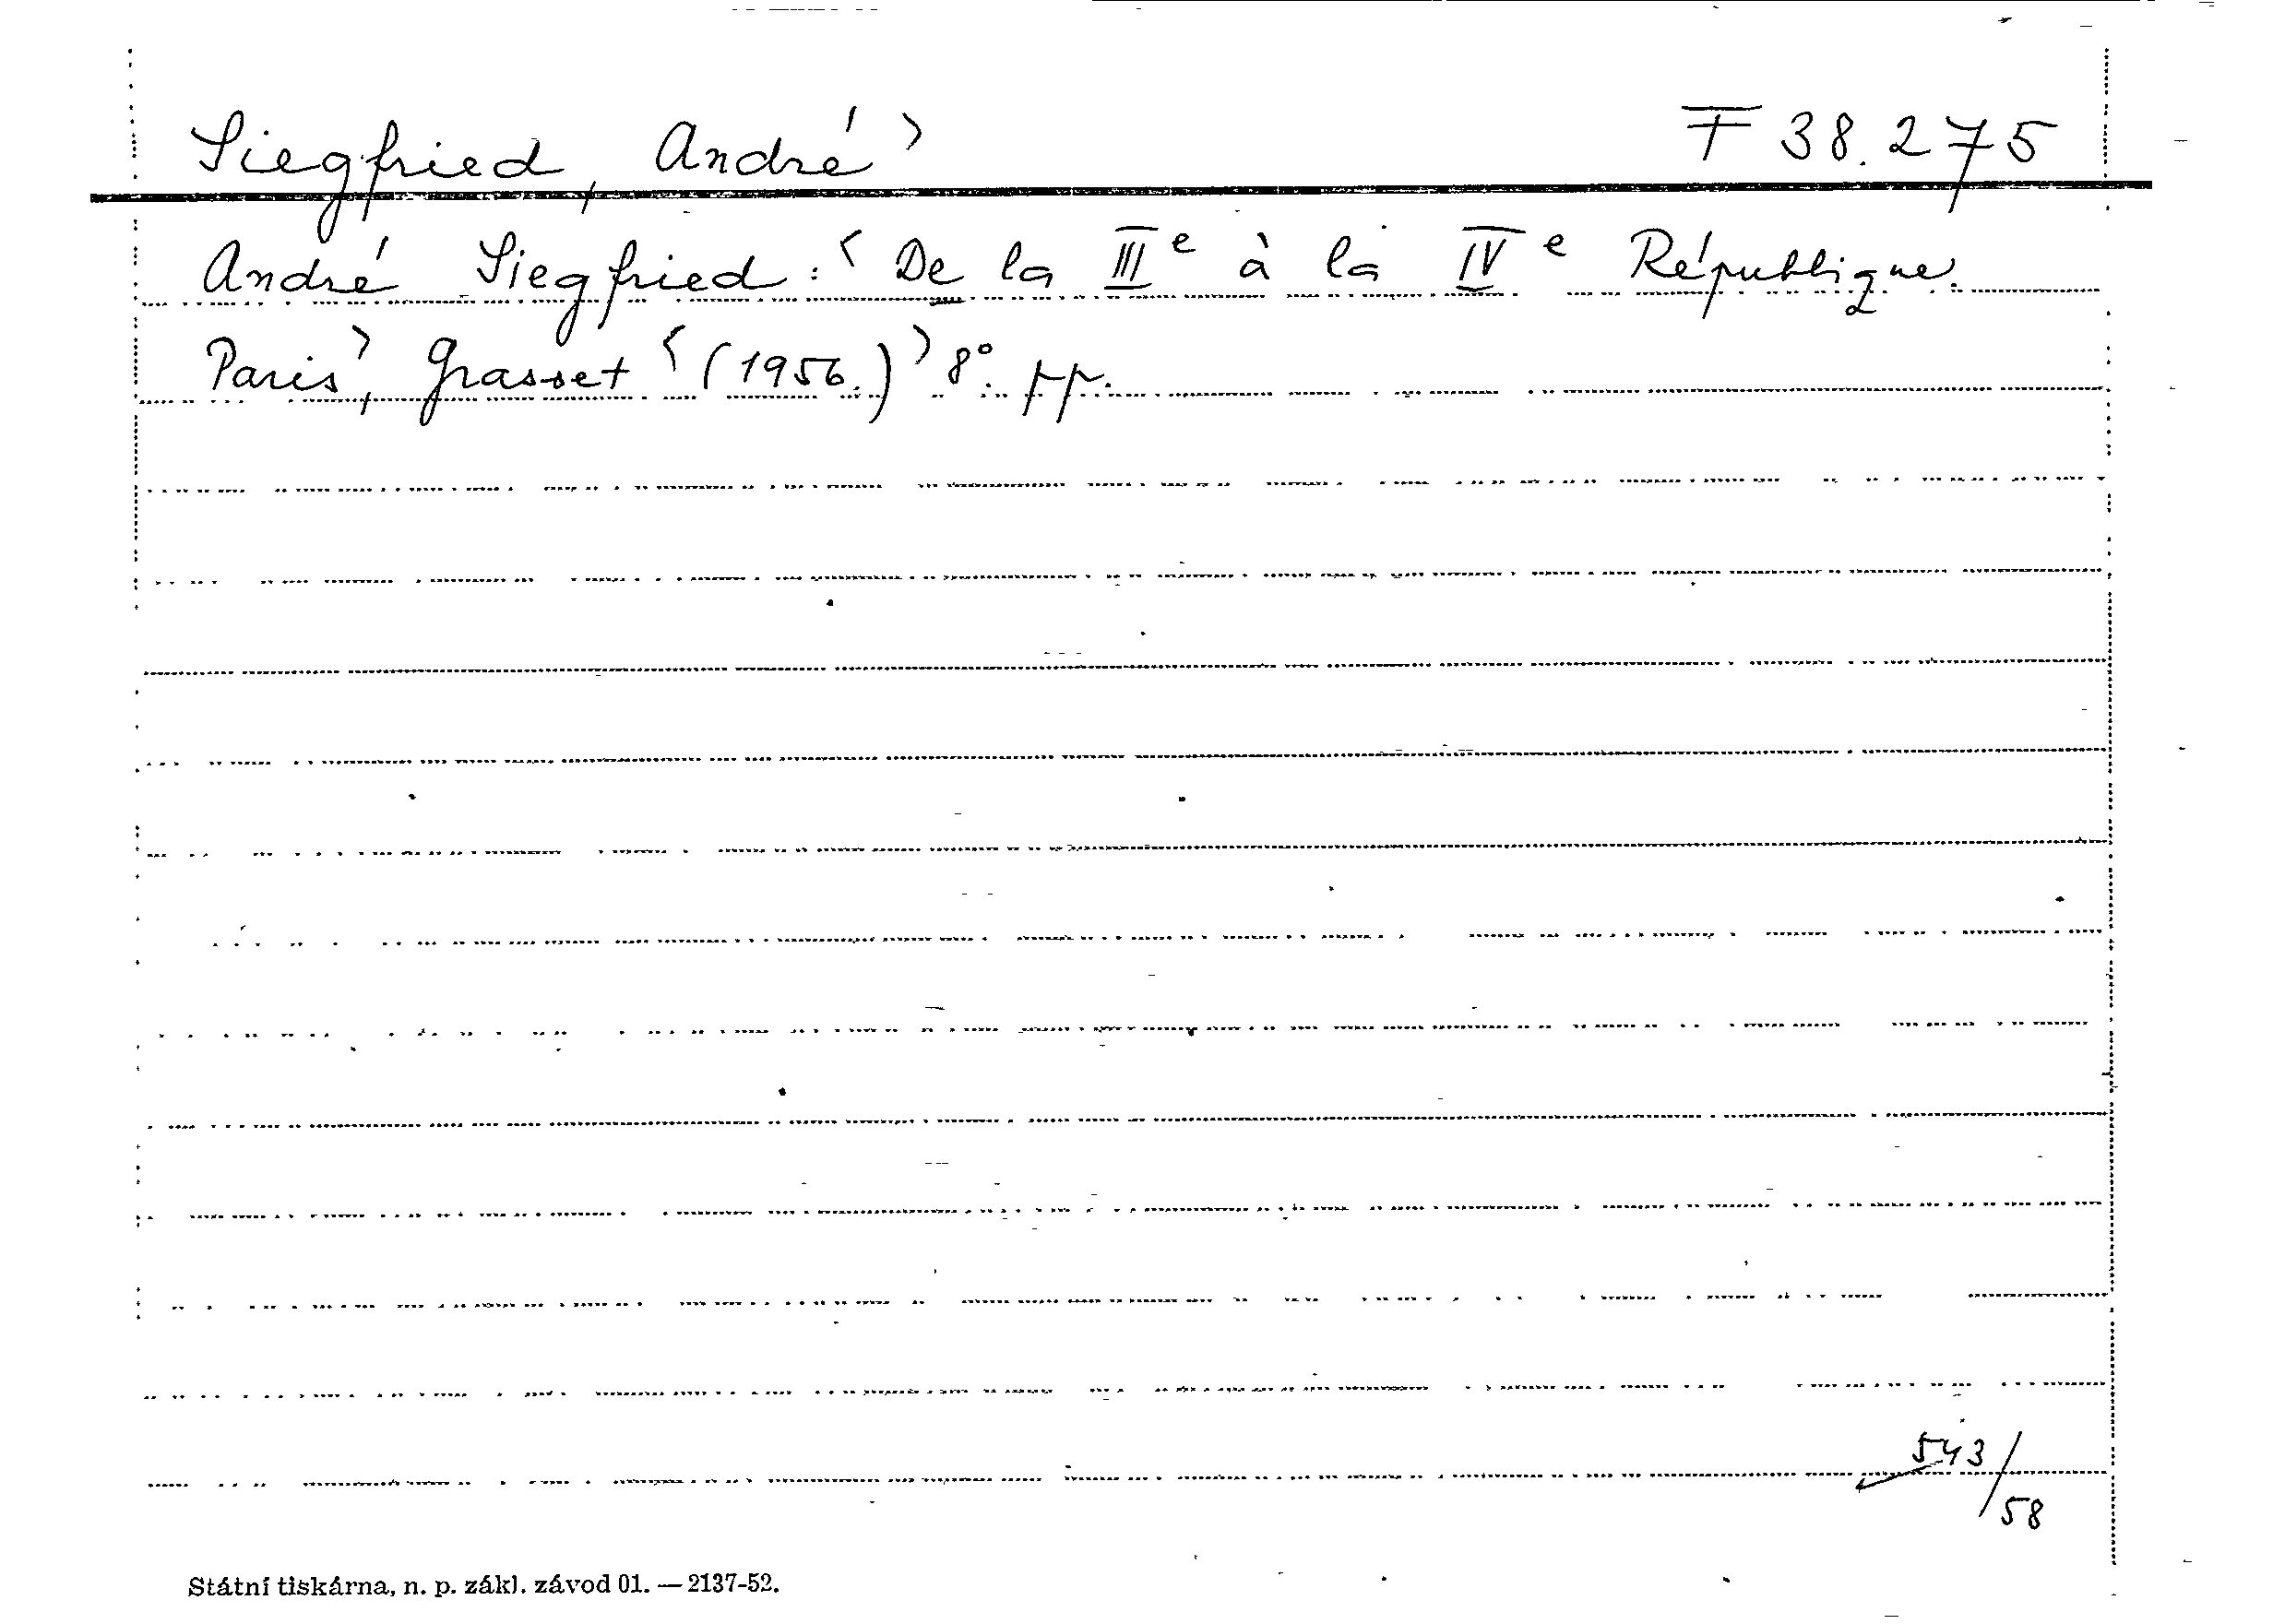 Siegfried, André > F 38.275
André Siegfried: < De la IIIe à la IVe République.
Paris >, Grasset < (1956.) > 8°. pp.
543/58
Státní tiskárna, n. p. zákl. závod 01. — 2137-52.